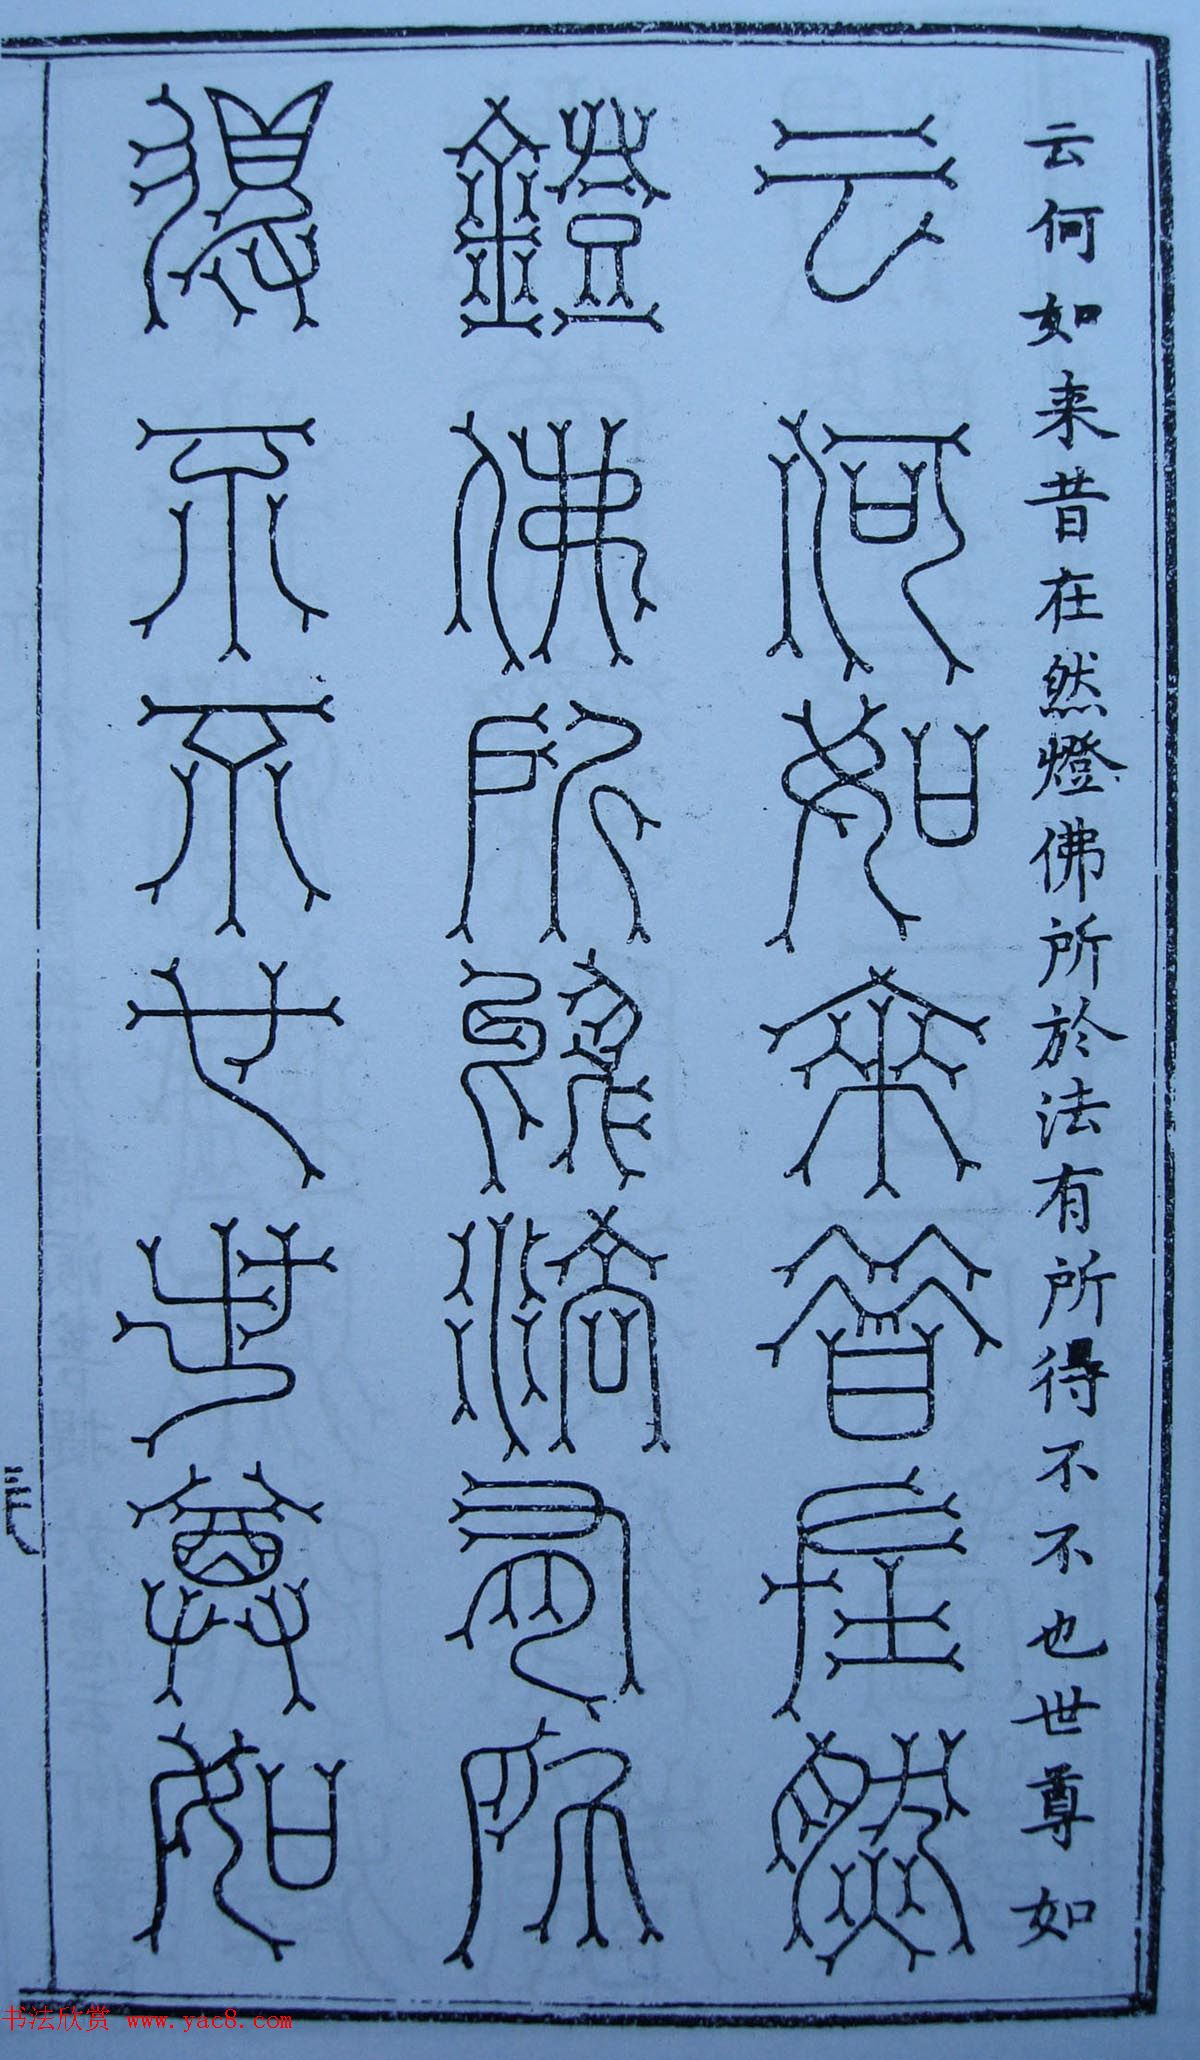 云何如来昔在然燈佛所於法有所得不不也世尊如
云何如来昔在然
鐙佛所於法有所
得不不也世尊如
三
书法欣赏 www.yac8.com